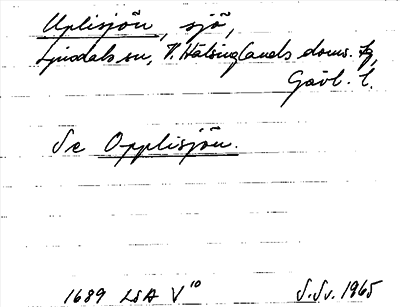 Uplisjön, sjö,
Ljusdals sn, V. Hälsinglands doms. tg,
Gävl. l.
Se Opplisjön.
1689 LSA V¹⁰ S.Sv. 1965